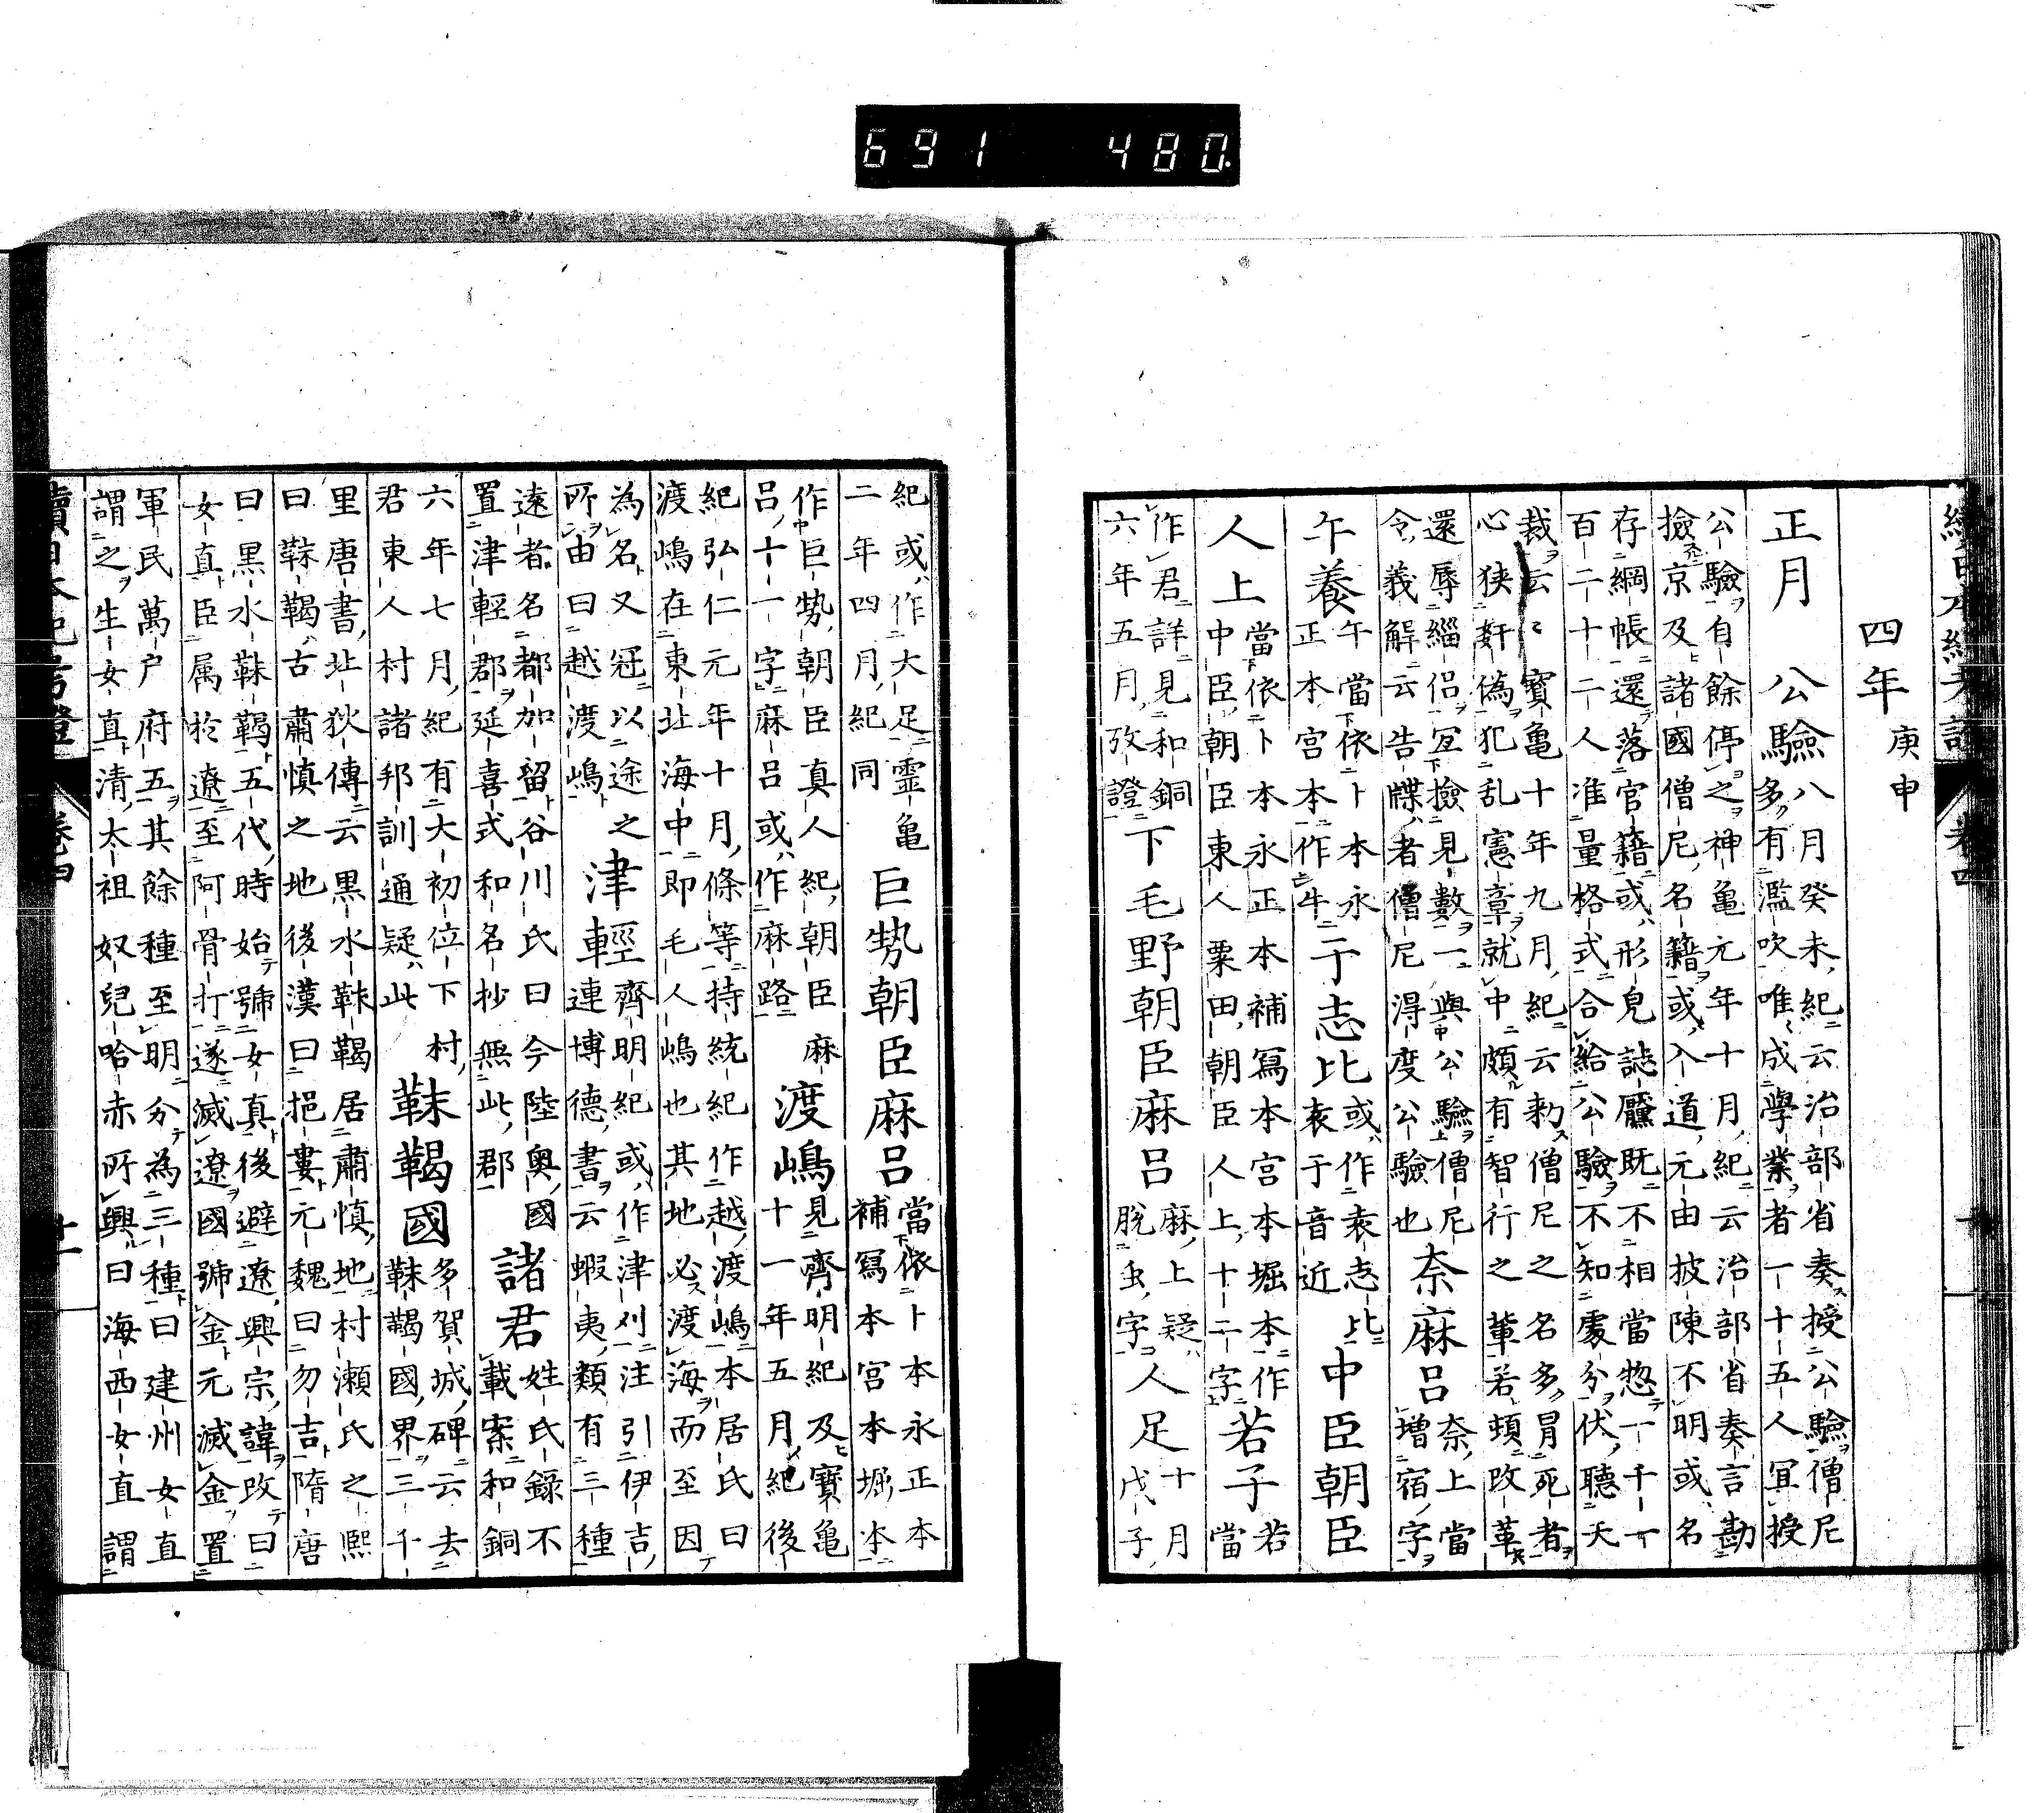 691 480
四年 庚申
正月 公驗 八月癸未紀云治部省奏授公驗僧尼
多有濫吹唯成學業者一十五人冝授
公驗自餘停之神亀元年十月紀云治部省奏言勘
撿京及諸國僧尼名籍或入道元由披陳不明或名
存綱帳還落官籍或形皃誌黶既不相當惣一千一
百二十二人准量格式合給公驗不知處分伏聽天
裁云〻寶亀十年九月紀云勅僧尼之名多冒死者
心狭奸偽犯乱憲章就中頗有智行之輩若頓改革
還辱緇侣冝撿見數一與公驗僧尼
令義解云告牒者僧尼得度公驗也 奈麻吕 奈上當
増宿字
午養 午當依卜本永
正本宮本作牛 于志比 或作袁志比
袁于音近 中臣朝臣
人上 當依卜本永正本補冩本宮本堀本作
中臣朝臣東人粟田朝臣人上十二字 若子 若
當
作君詳見和銅
六年五月攷證 下毛野朝臣麻吕 麻上疑
脱虫字 人足 十月
戊子
紀或作大足靈亀
二年四月紀同 巨勢朝臣麻吕 當依卜本永正本
補冩本宮本堀本
作巨勢朝臣真人紀朝臣麻
吕十一字麻吕或作麻路 渡嶋 見齊明紀及寳亀
十一年五月紀後
紀弘仁元年十月條等持統紀作越渡嶋本居氏曰
渡嶋在東北海中即毛人嶋也其地必渡海而至因
為名又冠以途之
所由曰越渡嶋 津輕 齊明紀或作津刈注引伊吉
連博德書云蝦夷類有三種
遠者名都加留谷川氏曰今陸奥國
置津輕郡延喜式和名抄無此郡 諸君 姓氏錄不
載案和銅
六年七月紀有大初位下村
君東人村諸邦訓通疑此 靺鞨國 多賀城碑云去
靺鞨國界三千
里唐書北狄傳云黒水靺鞨居肅慎地村瀬氏之熙
曰靺鞨古肅慎之地後漢曰挹婁元魏曰勿吉隋唐
曰黒水靺鞨五代時始號女真後避遼興宗諱改曰
女直臣属於遼至阿骨打遂滅遼國號金元滅金置
軍民萬户府五其餘種至明分為三種曰建州女直
謂之生女直清太祖奴兒哈赤所興曰海西女直謂